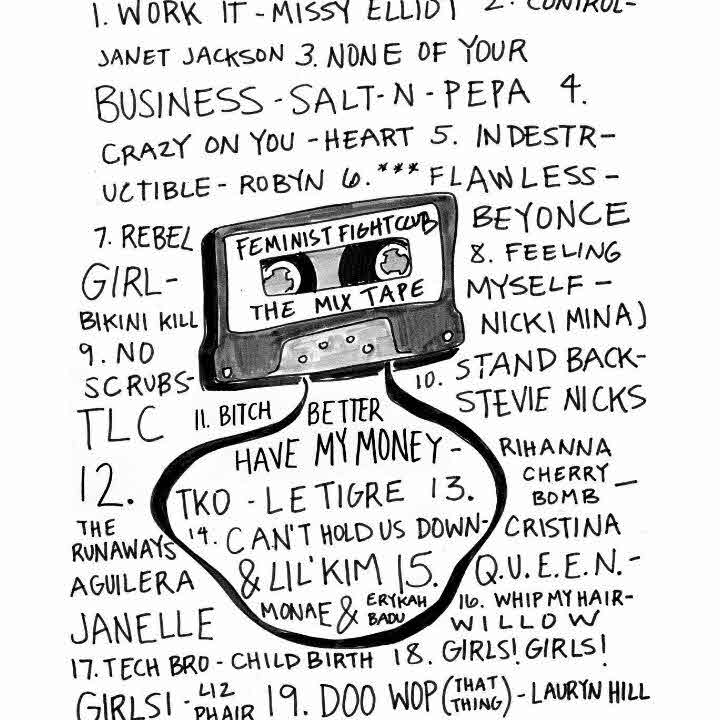 1. WORK IT - MISSY ELLIOT 2. CONTROL-
JANET JACKSON 3. NONE OF YOUR
BUSINESS - SALT-N-PEPA 4.
CRAZY ON YOU - HEART 5. INDESTR-
UCTIBLE - ROBYN 6. *** FLAWLESS -
BEYONCE
7. REBEL
GIRL-
BIKINI KILL
FEMINIST FIGHT CLUB
THE MIX TAPE
8. FEELING
MYSELF -
NICKI MINAJ
9. NO
SCRUBS-
TLC
10. STAND BACK-
STEVIE NICKS
11. BITCH BETTER
HAVE MY MONEY - RIHANNA
12. TKO - LE TIGRE 13. CHERRY
BOMB -
THE
RUNAWAYS
14. CAN'T HOLD US DOWN- CRISTINA
AGUILERA & LIL' KIM 15. Q.U.E.E.N. -
JANELLE MONAE & ERYKAH
BADU
16. WHIP MY HAIR-
WILLOW
17. TECH BRO - CHILD BIRTH 18. GIRLS! GIRLS!
GIRLS! - LIZ
PHAIR
19. DOO WOP (THAT
THING) - LAURYN HILL